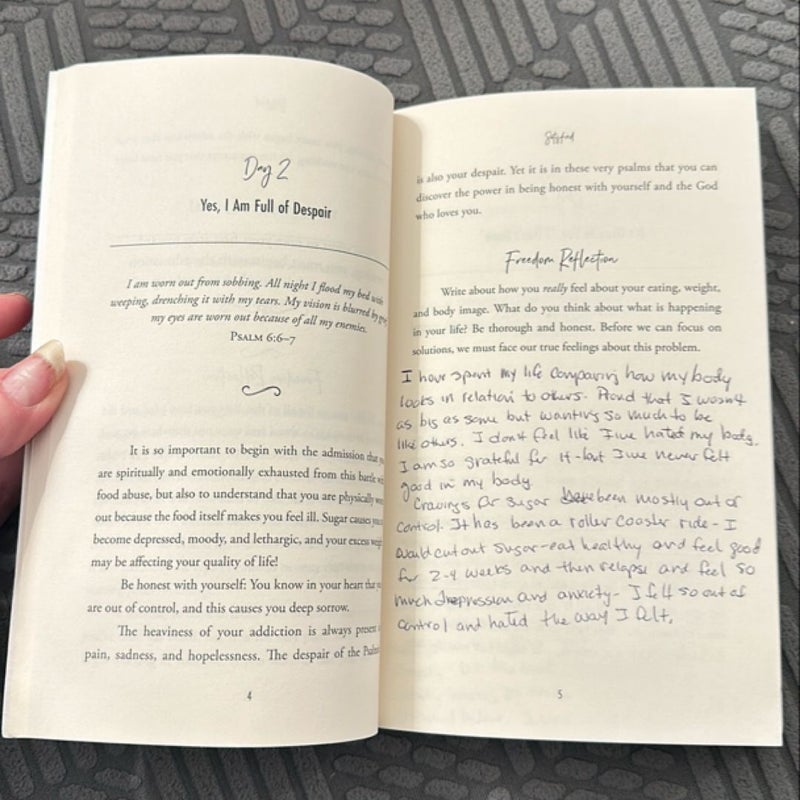 Day 2
Yes, I Am Full of Despair
I am worn out from sobbing. All night I flood my bed with
weeping, drenching it with my tears. My vision is blurred by grief;
my eyes are worn out because of all my enemies.
Psalm 6:6–7
It is so important to begin with the admission that you
are spiritually and emotionally exhausted from this battle with
food abuse, but also to understand that you are physically worn
out because the food itself makes you feel ill. Sugar causes you to
become depressed, moody, and lethargic, and your excess weight
may be affecting your quality of life!
Be honest with yourself: You know in your heart that you
are out of control, and this causes you deep sorrow.
The heaviness of your addiction is always present in
pain, sadness, and hopelessness. The despair of the Psalms
4
Satisfied
is also your despair. Yet it is in these very psalms that you can
discover the power in being honest with yourself and the God
who loves you.
Freedom Reflection
Write about how you really feel about your eating, weight,
and body image. What do you think about what is happening
in your life? Be thorough and honest. Before we can focus on
solutions, we must face our true feelings about this problem.
I have spent my life comparing how my body
looks in relation to others. Proud that I wasn't
as big as some but wanting so much to be
like others. I don't feel like I've hated my body.
I am so grateful for it - but I've never felt
good in my body.
Cravings for sugar have been mostly out of
control. It has been a roller coaster ride - I
would cut out sugar - eat healthy and feel good
for 2-4 weeks and then relapse and feel so
much depression and anxiety - I felt so out of
control and hated the way I felt.
5